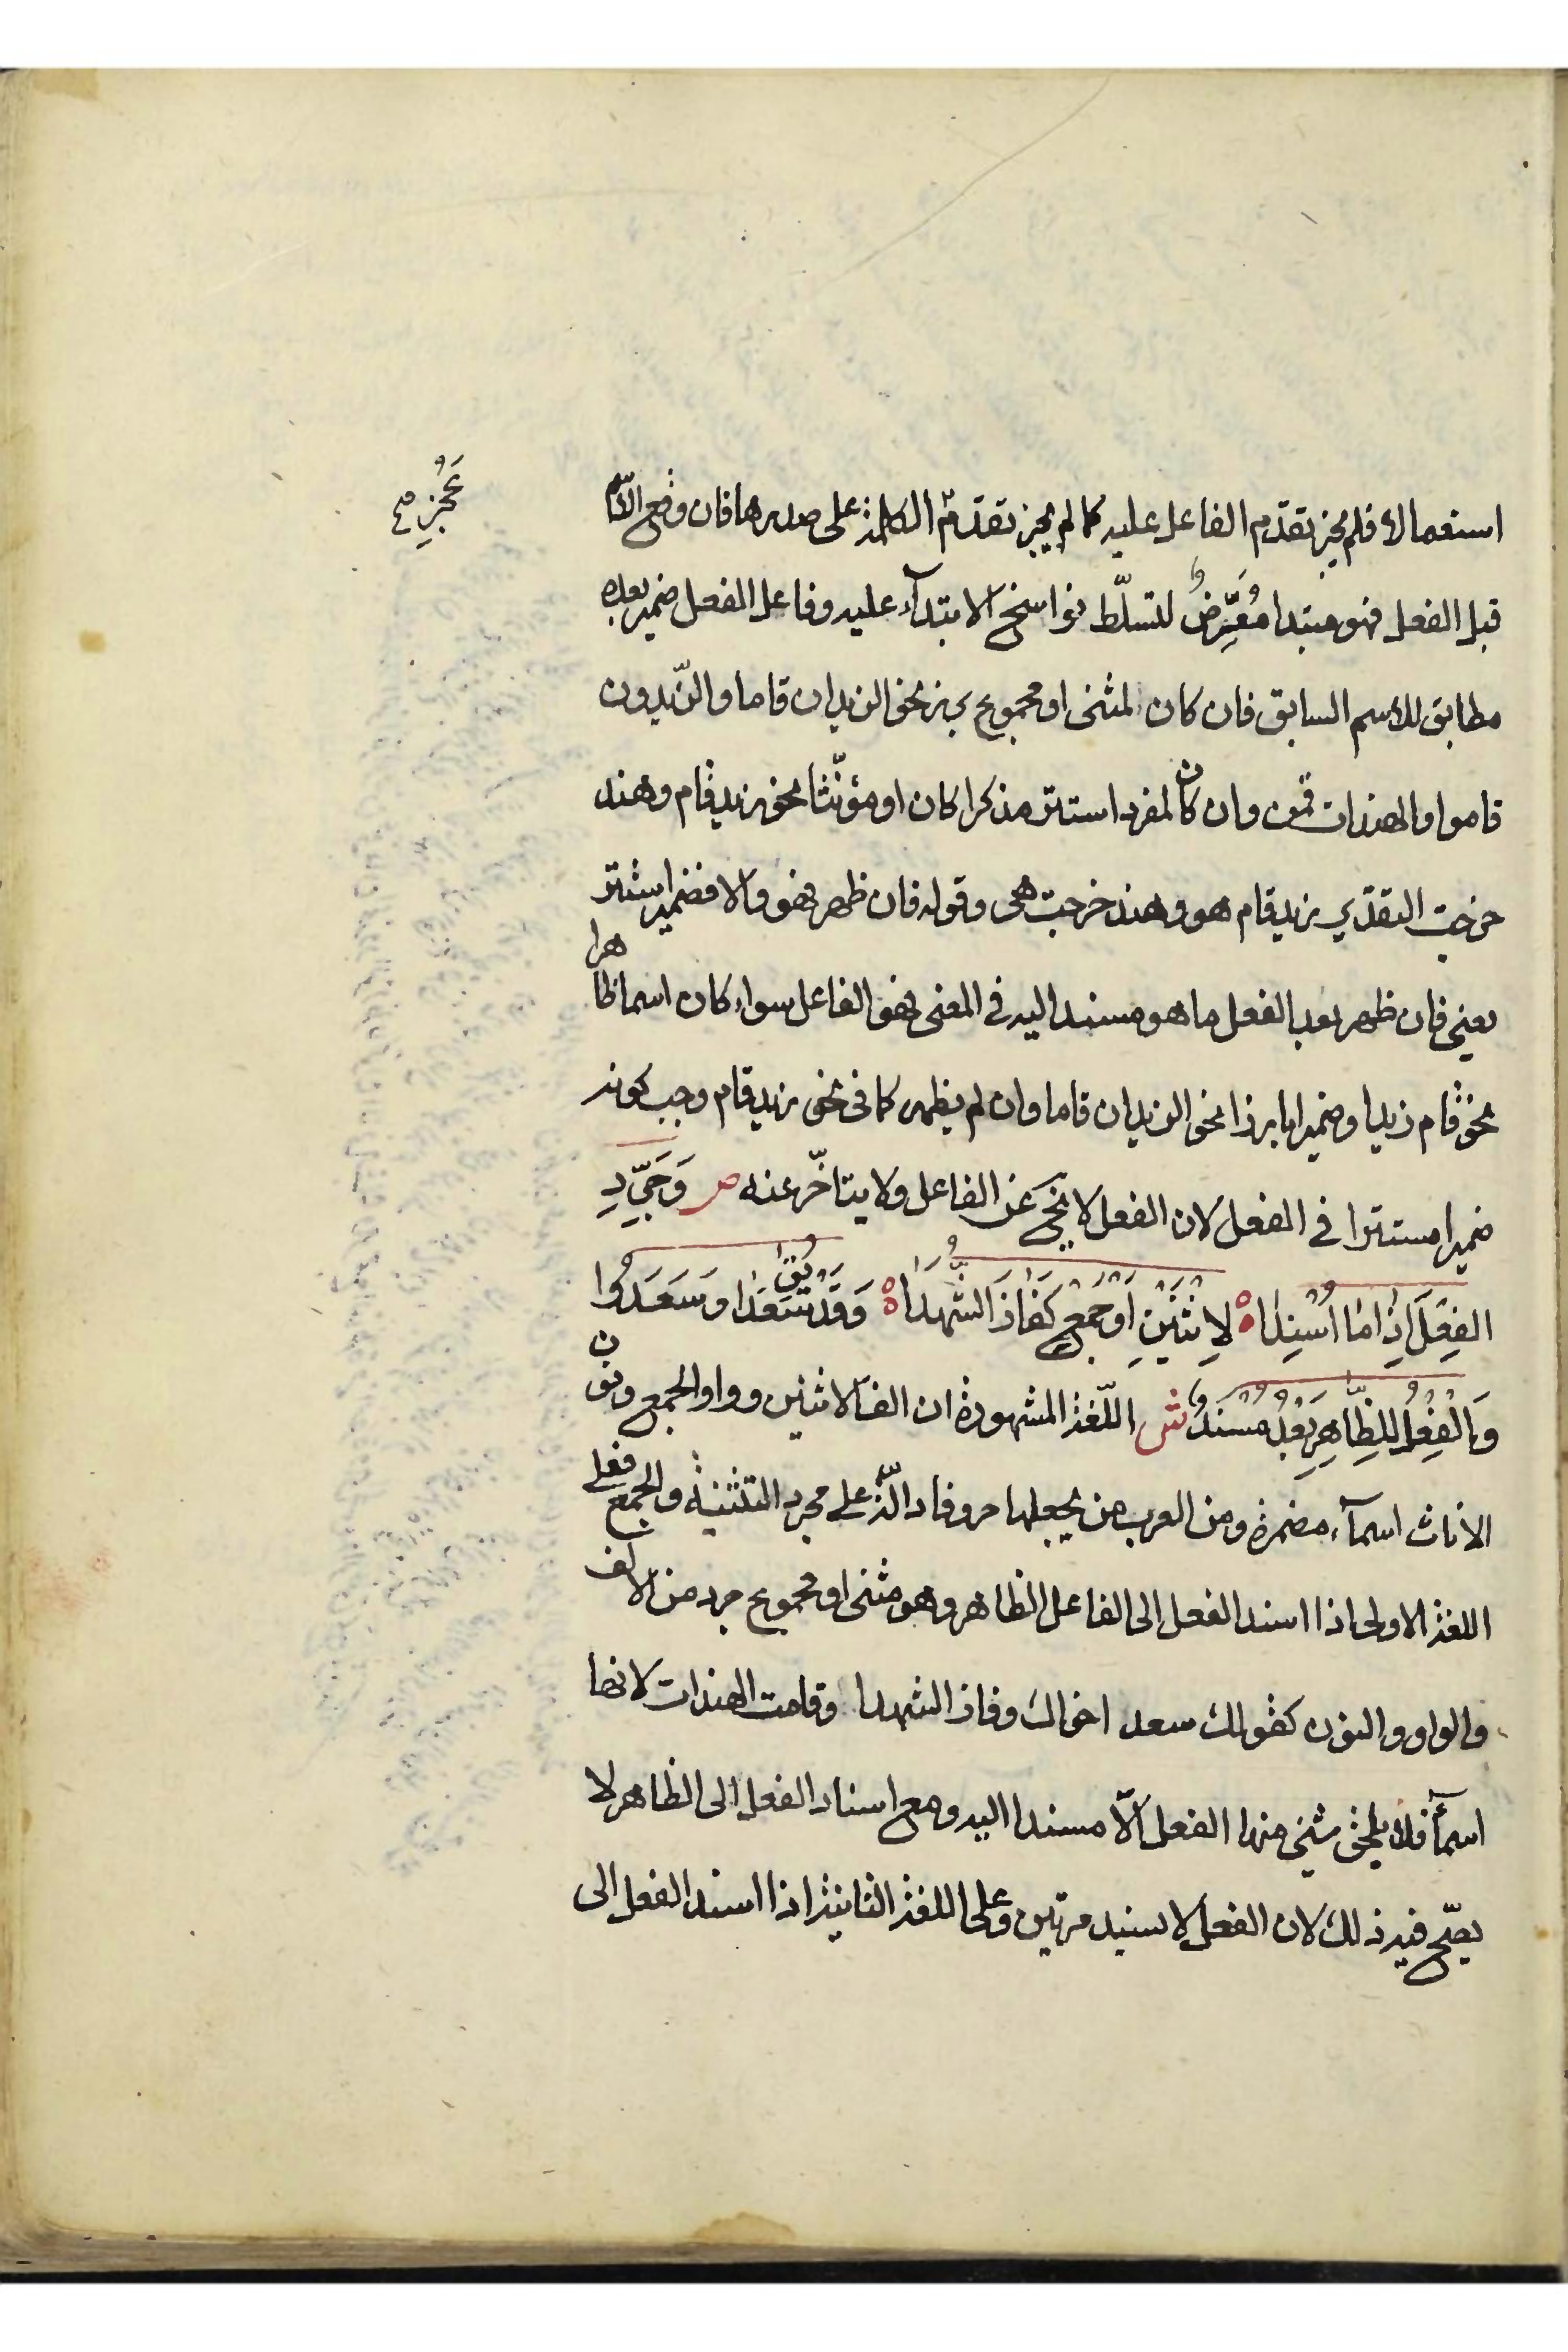 عَجُزِ صح
استعمالا فلم يجز تقدّم الفاعل عليه كما لم يجز تقدّم الكلمة على صدرها فان وقع الاسم
قبل الفعل فهو مبتدا مُعَرَّضٌ لتسلّط نواسخ الابتدآء عليه وفاعل الفعل ضمير بعده
مطابق للاسم السابق فان كان لمثنى او مجموع برز نحو الزيدان قاما والزّيدون
قاموا والهندات قمن وان كان لمفرد استتر مذكرا كان او مؤنّثا نحو زيد قام وهند
خرجت التقدير زيد قام هو وهند خرجت هى وقوله فان ظهر فهو والا فضمير استتر
يعني فان ظهر بعد الفعل ما هو مسند اليه فى المعنى فهو الفاعل سواء كان اسما ظاهرا
نحو قام زيدا وضميرا بارزا نحو الزيدان قاما وان لم يظهر كما فى نحو زيد قام وجب كونه
ضميرا مستترا فى الفعل لان الفعل لا يخ عن الفاعل ولا يتاخّر عنه ص وَجَرِّدِ
الفِعْلَ اِذَا مَا اُسْنِدَا ه لِاثْنَيْنِ اَوْ جَمْعٍ كَفَازَ الشُّهَدَا ه وَقَدْ يُقَ سَعَدَا وَسَعَدُوا
وَالْفِعْلُ لِلظَّاهِرِ بَعْدُ مُسْنَدُ ش اللّغة المشهورة ان الف الاثنين وواو الجمع ونون
الاناث اسمآء مضمرة ومن العرب من يجعلها حروفا دالّة على مجرد التثنية والجمع فعلى
اللغة الاولى اذا اسند الفعل الى الفاعل الظاهر وهو مثنى او مجموع جرد من الالف
والواو والنون كقولك سعد اخواك وفاز الشهدا وقامت الهندات لانها
اسمآء فلا يلحق شئ منها الفعل الّا مسندا اليه ومع اسناد الفعل الى الظاهر لا
يصّح فيه ذلك لان الفعل لا يسند مرتين وعلى اللغة الثانية اذا اسند الفعل الى